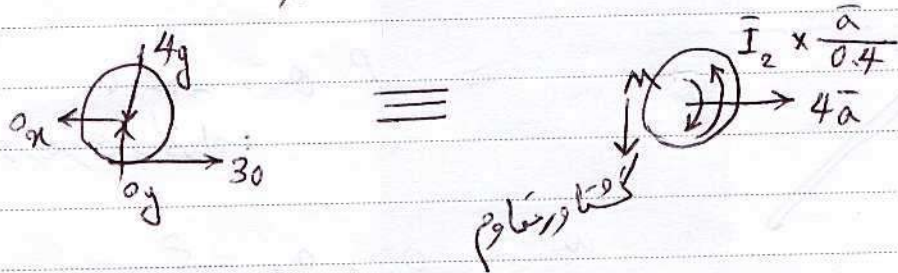 4g
O_x
O_y
30
≡
Ī₂ × ā/0.4
M
4ā
گشتاور مقاوم